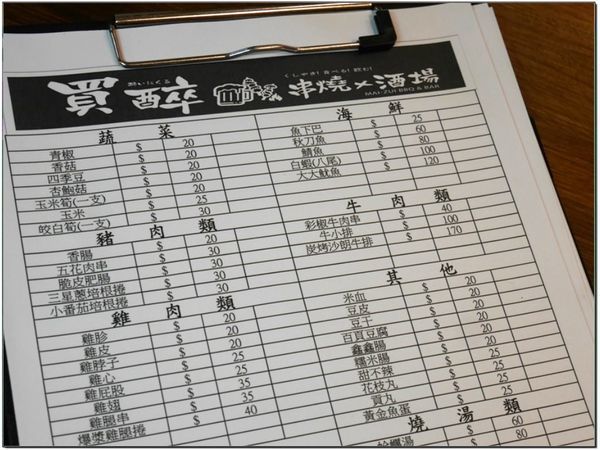 買醉 串燒×酒場
くしやき!食べる!飲む!
MAI ZUI BBQ & BAR
蔬 菜
青椒 $ 20
香菇 $ 20
四季豆 $ 20
杏鮑菇 $ 20
玉米筍(一支) $ 20
玉米 $ 25
皎白筍(一支) $ 30
豬 肉 類
香腸 $ 20
五花肉串 $ 30
脆皮肥腸 $ 30
三星蔥培根捲 $ 30
小番茄培根捲 $ 30
雞 肉 類
雞胗 $ 20
雞皮 $ 20
雞脖子 $ 25
雞心 $ 25
雞屁股 $ 35
雞翅 $ 35
雞腿串 $ 40
爆漿雞腿捲
海 鮮
魚下巴 $ 25
秋刀魚 $ 60
鯖魚 $ 80
白蝦(八尾) $ 100
大大魷魚 $ 120
牛 肉 類
彩椒牛肉串 $ 40
牛小排 $ 100
炭烤沙朗牛排 $ 170
其 他
米血 $ 20
豆皮 $ 20
豆干 $ 20
百頁豆腐 $ 20
鑫鑫腸 $
糯米腸 $
甜不辣 $
花枝丸 $
貢丸 $ 25
黃金魚蛋 $ 25
燒 湯 類
蛤蠣湯 $ 60
$ 80